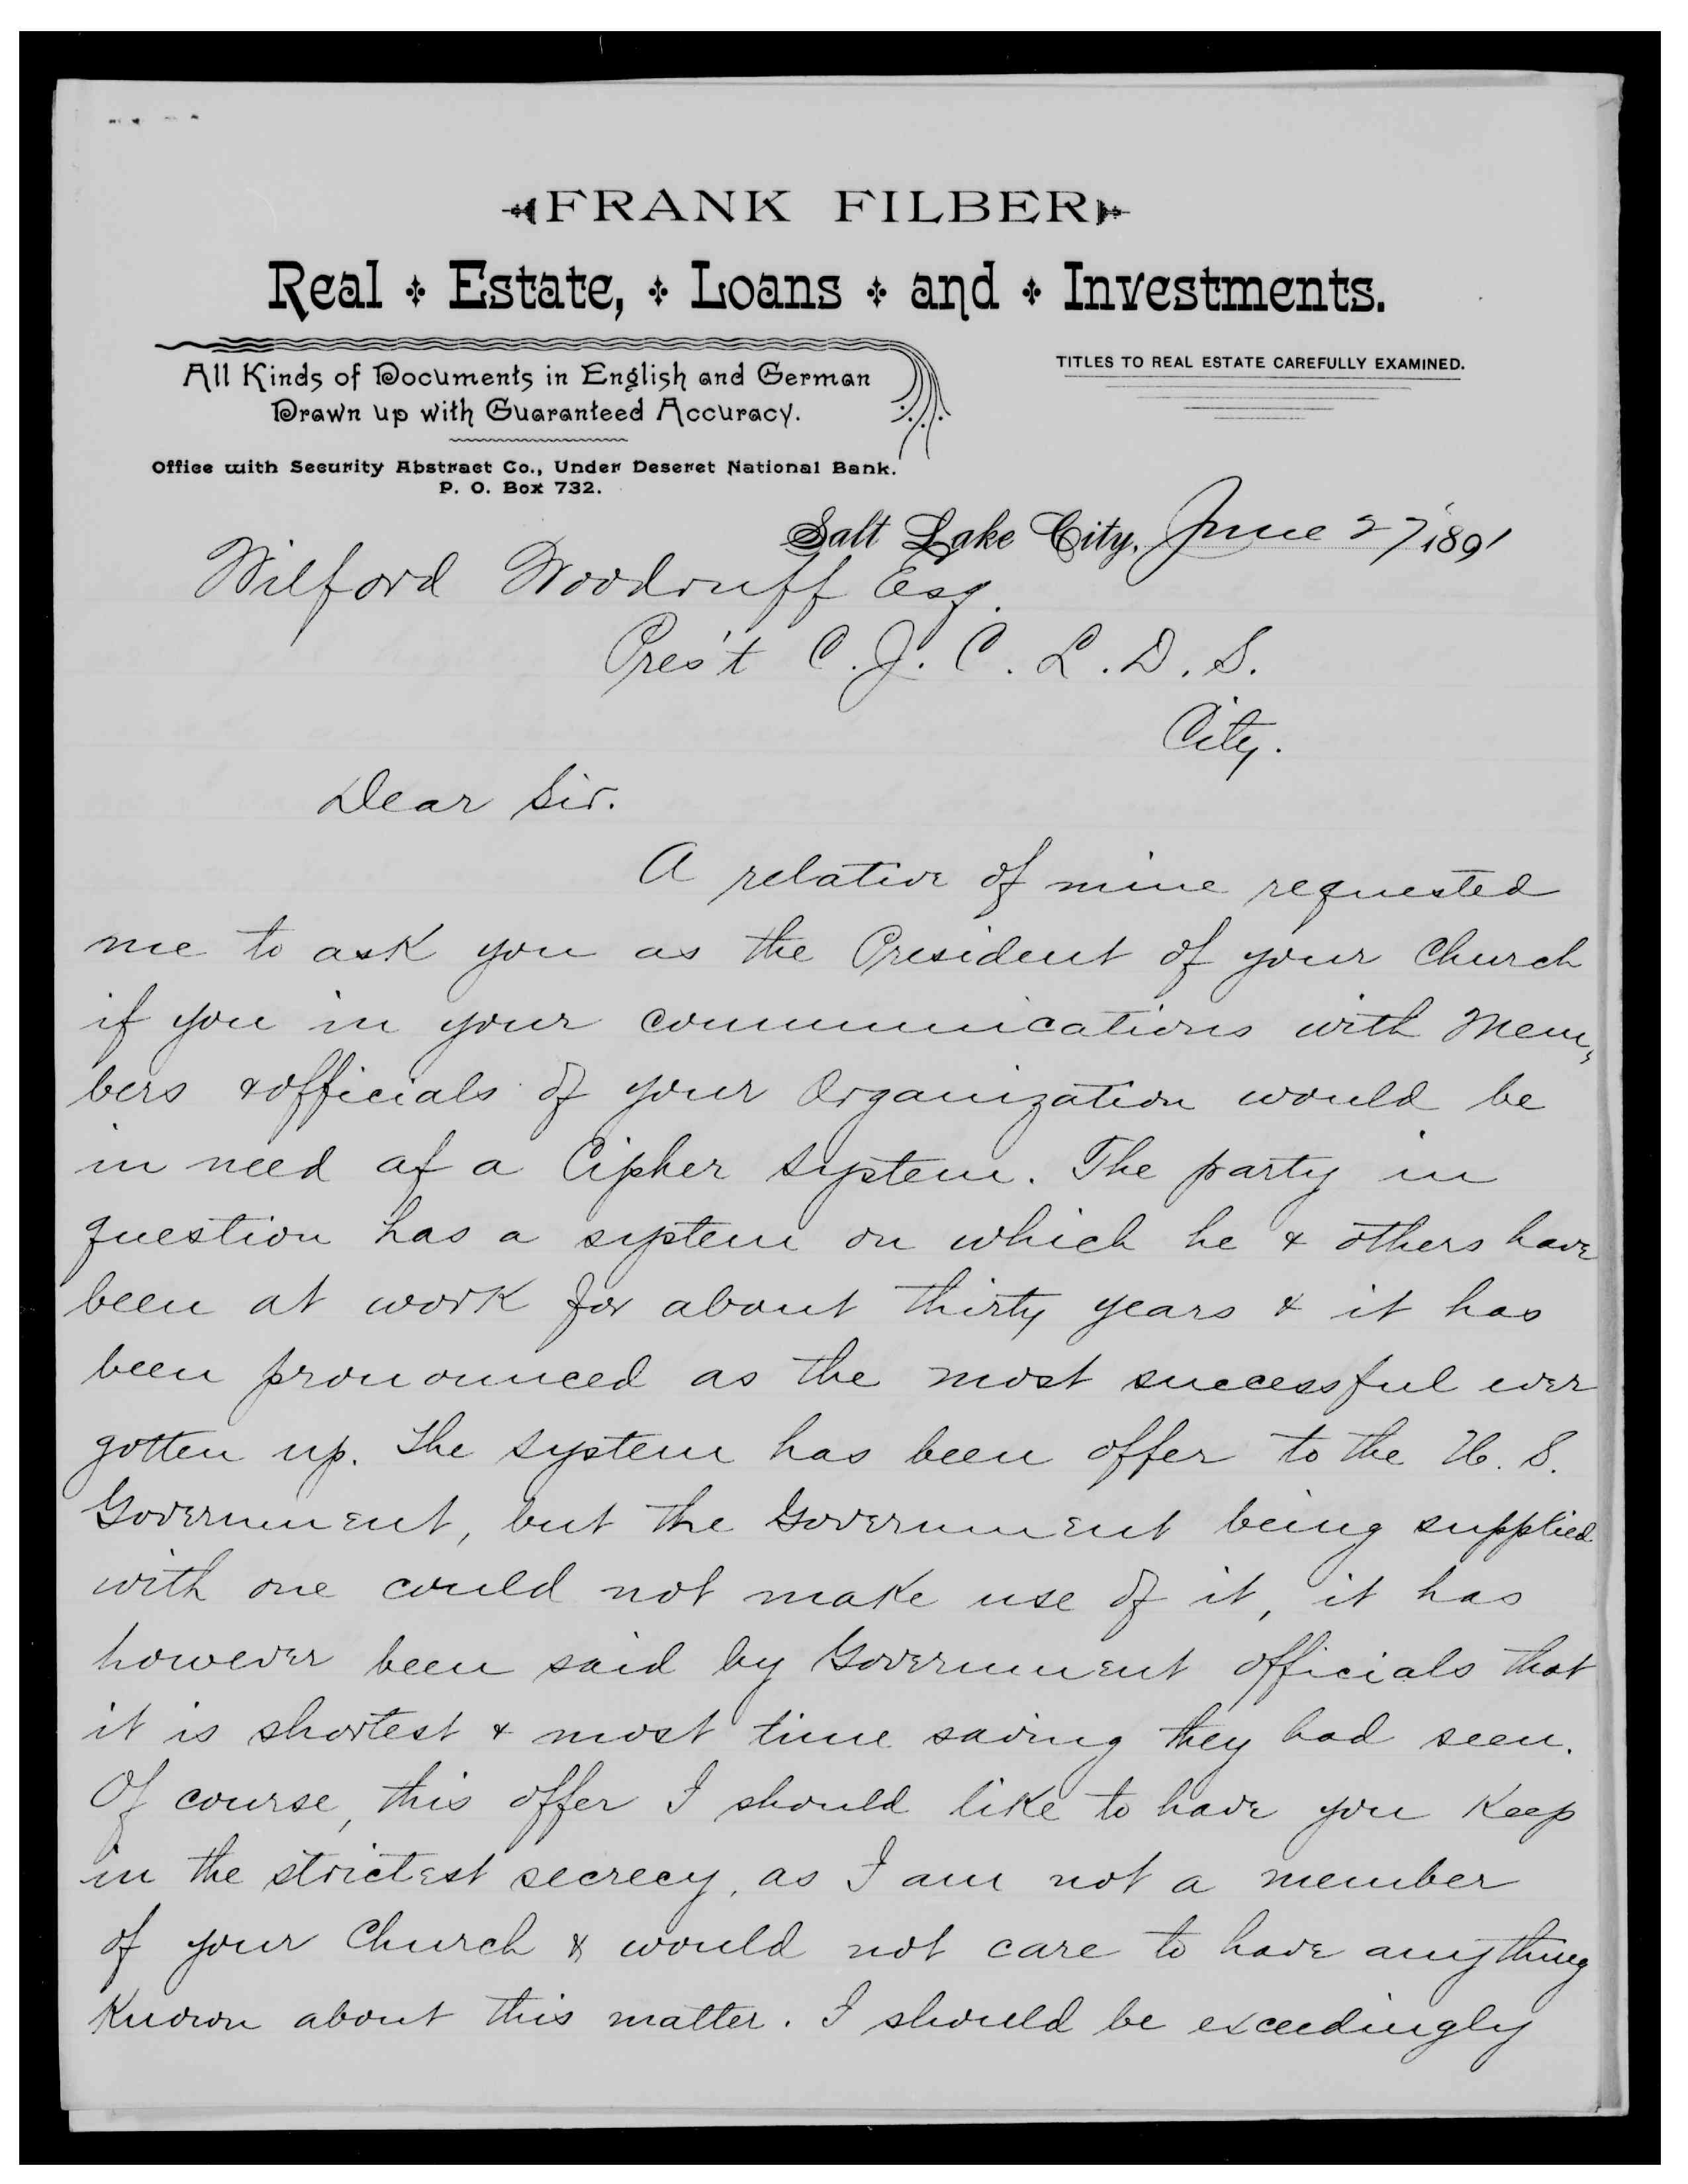 FRANK FILBER
Real Estate, Loans and Investments.
All Kinds of Documents in English and German
Drawn up with Guaranteed Accuracy.
TITLES TO REAL ESTATE CAREFULLY EXAMINED.
Office with Security Abstract Co., Under Deseret National Bank.
P. O. Box 732.
Salt Lake City, June 27 1891
Wilford Woodruff Esq.
Pres't C. J. C. L. D. S.
City.
Dear Sir.
A relative of mine requested
me to ask you as the President of your Church
if you in your communications with Mem,
bers & officials of your Organization would be
in need of a Cipher System. The party in
question has a system on which he & others have
been at work for about thirty years & it has
been pronounced as the most successful ever
gotten up. The system has been offer to the U. S.
Government, but the Government being supplied
with one could not make use of it, it has
however been said by Government officials that
it is shortest & most time saving they had seen.
Of course, this offer I should like to have you Keep
in the strictest secrecy, as I am not a member
of your Church & would not care to have anything
Known about this matter. I should be exceedingly